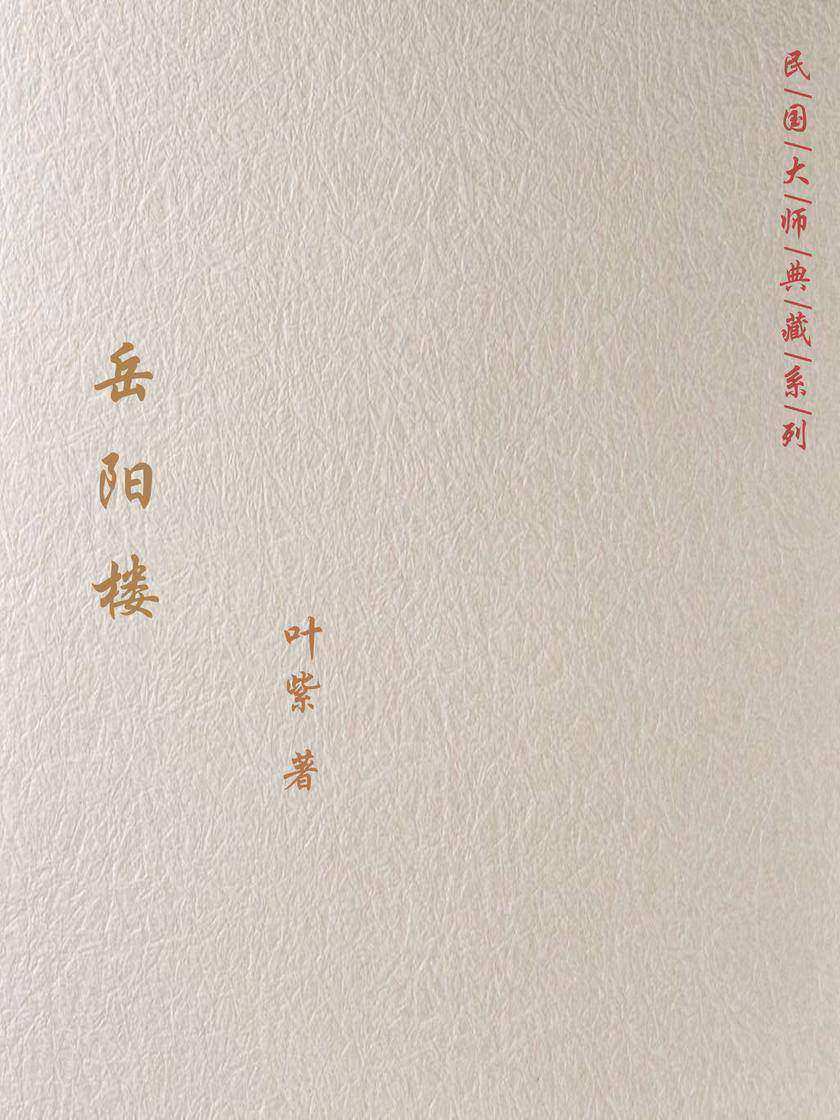 民|国|大|师|典|藏|系|列
岳阳楼
叶紫 著